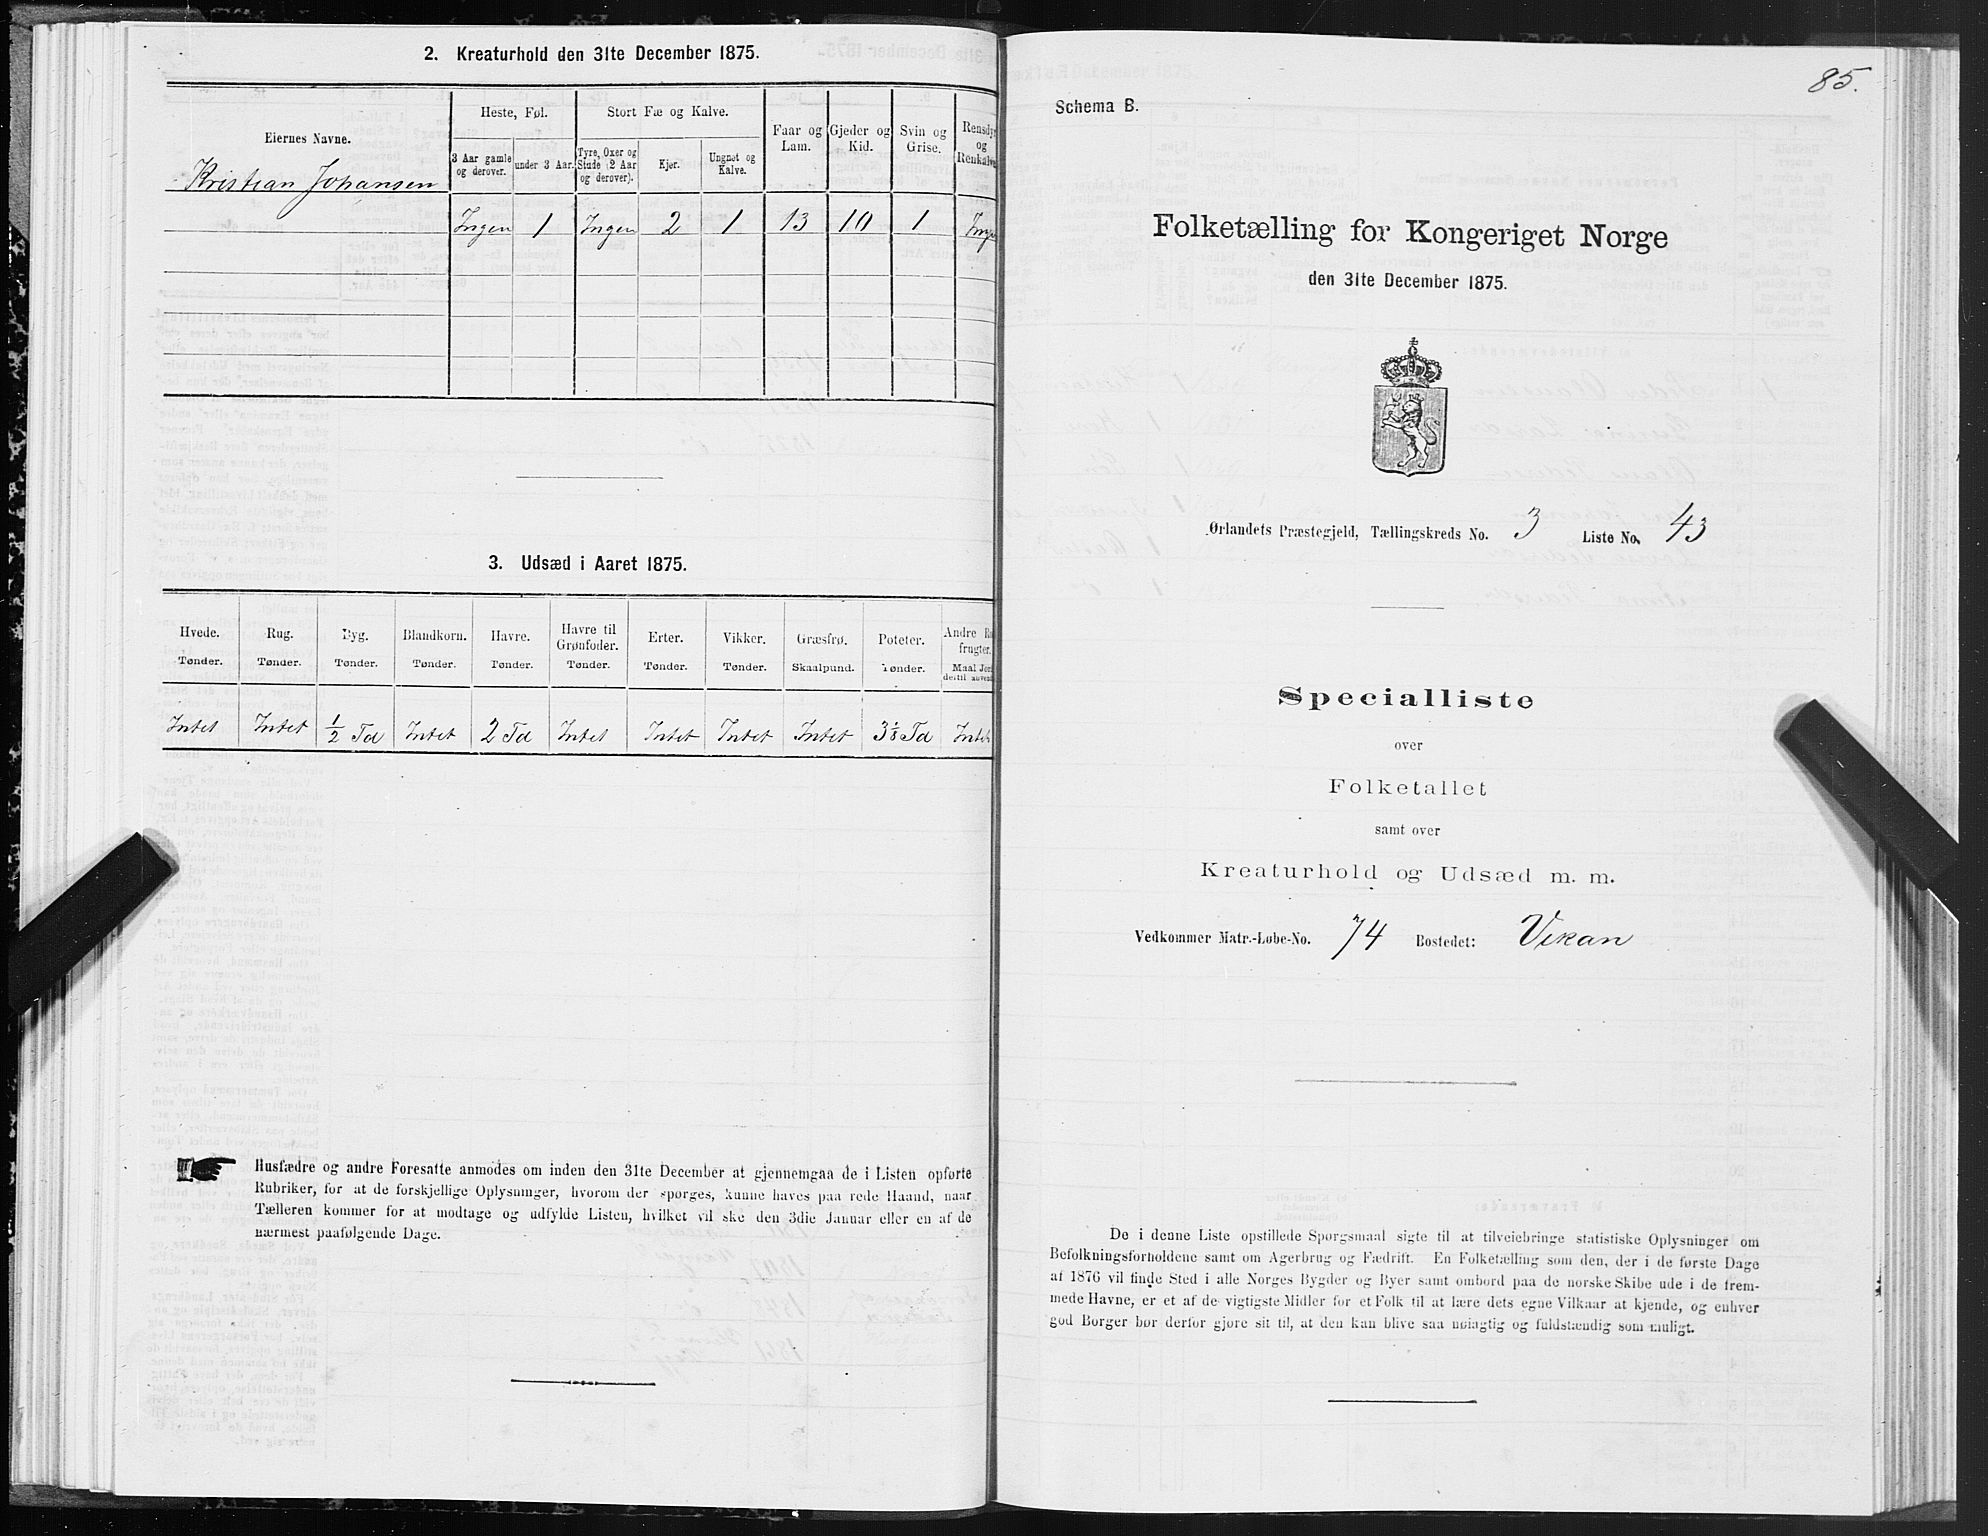 2. Kreaturhold den 31te December 1875.
Eiernes Navne.
Heste, Føl.
Stort Fæ og Kalve.
Faar og Lam.
Gjeder og Kid.
Svin og Grise.
Rensdyr og Renkalve
3 Aar gamle og derover.
under 3 Aar.
Tyre, Oxer og Stude (2 Aar og derover).
Kjør.
Ungnøt og Kalve.
Kristian Johansen
Ingen 1 Ingen 2 1 13 10 1 Ingen
3. Udsæd i Aaret 1875.
Hvede. Rug. Byg. Blandkorn. Havre. Havre til Grønfoder. Erter. Vikker. Græsfrø. Poteter. Andre
frugter.
Tønder. Tønder. Tønder. Tønder. Tønder. Tønder. Tønder. Tønder. Skaalpund. Tønder. Maal
Intet Intet 1/2 Td Intet 2 Td Intet Intet Intet Intet 3 1/8 Td Intet
Husfædre og andre Foresatte anmodes om inden den 31te December at gjennemgaa de i Listen opførte
Rubriker, for at de forskjellige Oplysninger, hvorom der spørges, kunne haves paa rede Haand, naar
Tælleren kommer for at modtage og udfylde Listen, hvilket vil ske den 3die Januar eller en af de
nærmest paafølgende Dage.
85.
Schema B.
Folketælling for Kongeriget Norge
den 31te December 1875.
Ørlandets Præstegjeld, Tællingskreds No. 3 Liste No. 43
Specialliste
over
Folketallet
samt over
Kreaturhold og Udsæd m. m.
Vedkommer Matr.-Løbe-No. 74 Bostedet: Vikan
De i denne Liste opstillede Spørgsmaal sigte til at tilveiebringe statistiske Oplysninger om
Befolkningsforholdene samt om Agerbrug og Fædrift. En Folketælling som den, der i de første Dage
af 1876 vil finde Sted i alle Norges Bygder og Byer samt ombord paa de norske Skibe ude i de frem-
mede Havne, er et af de vigtigste Midler for et Folk til at lære dets egne Vilkaar at kjende, og enhver
god Borger bør derfor gjøre sit til, at den kan blive saa nøiagtig og fuldstændig som muligt.